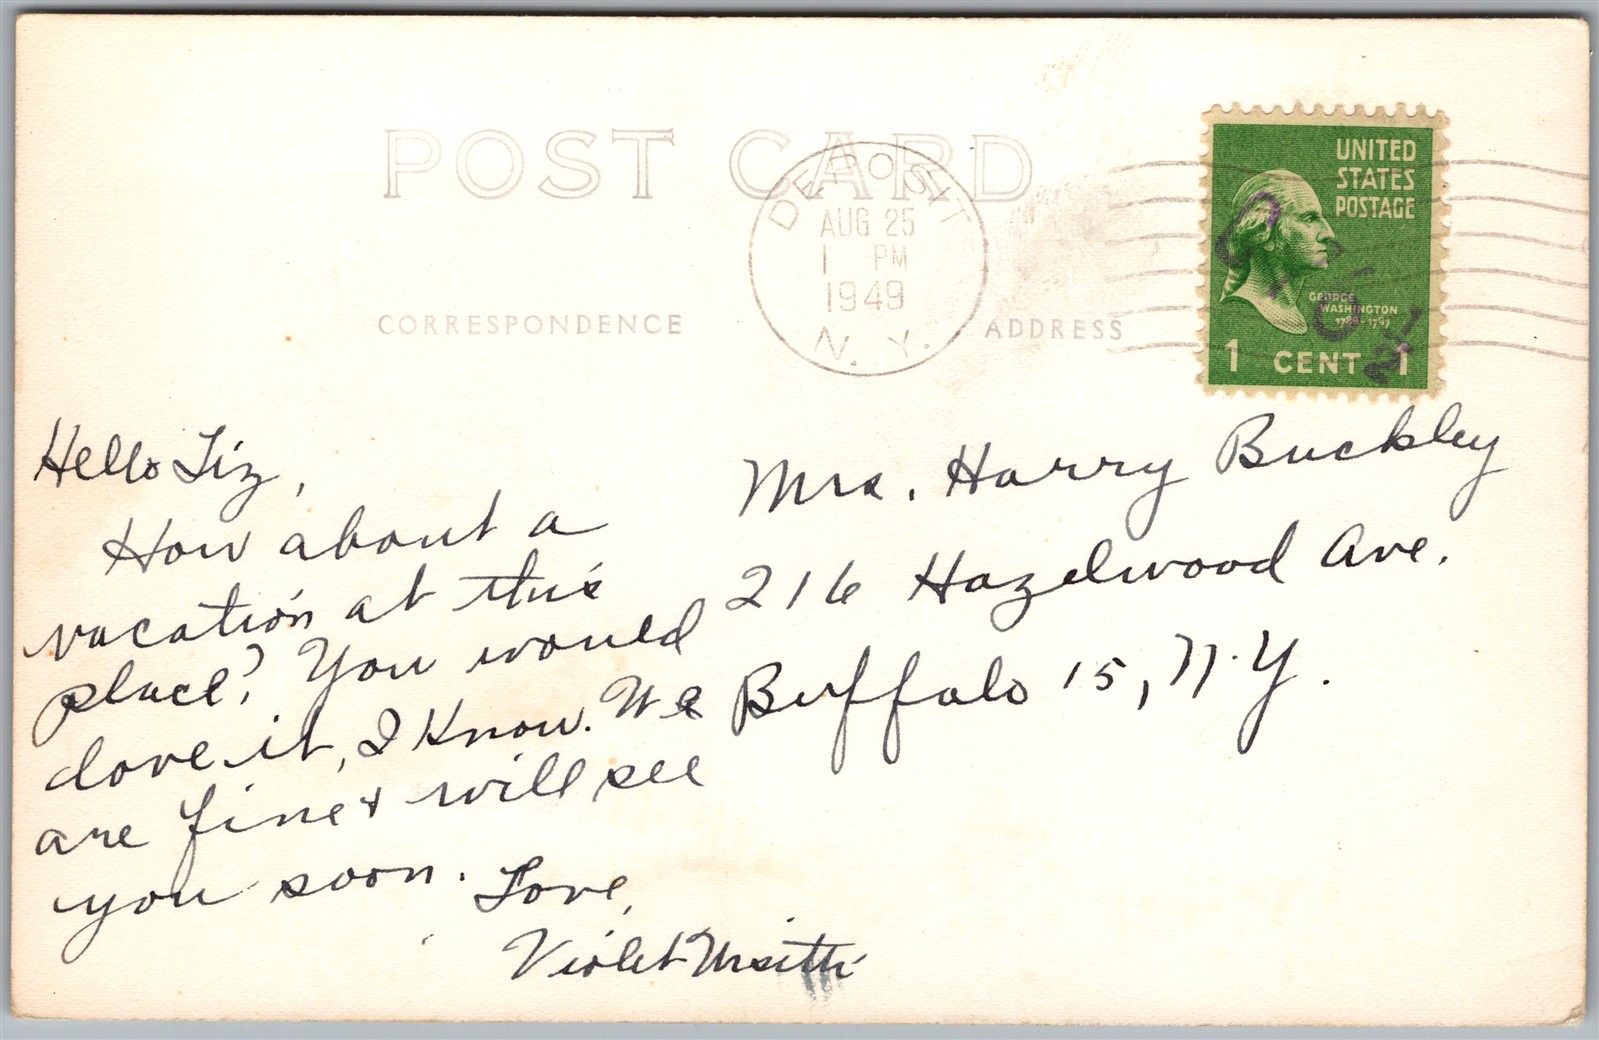 POST CARD
DEPOSIT
AUG 25
1 PM
1949
N. Y.
UNITED
STATES
POSTAGE
GEORGE
WASHINGTON
1789-1797
1 CENT 1
CORRESPONDENCE
ADDRESS
Hello Liz,
How about a
vacation at this
place? You would
love it, I know. We
are fine & will see
you soon. Love,
Violet
Mrs. Harry Buckley
216 Hazelwood Ave.
Buffalo 15, N.Y.